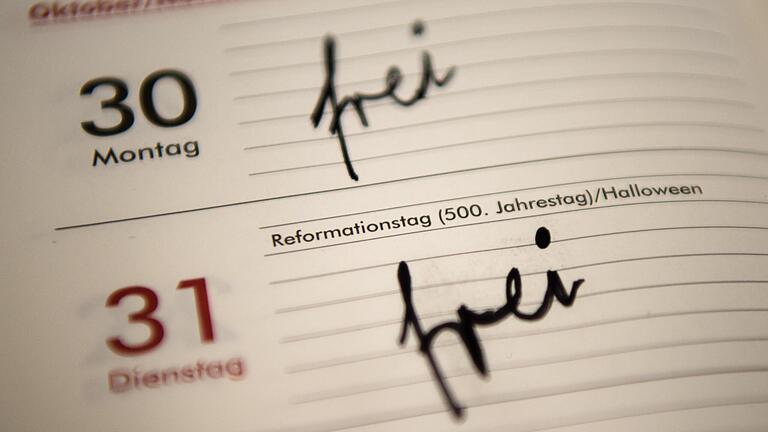 30
Montag
frei
Reformationstag (500. Jahrestag)/Halloween
31
Dienstag
frei